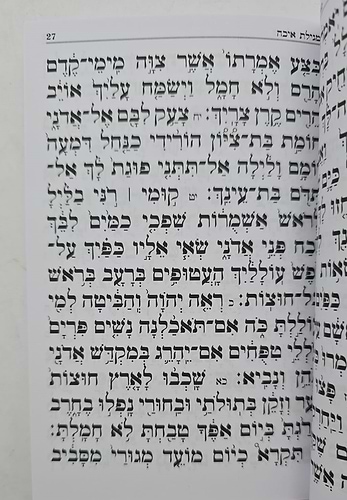 27 מגילת איכה
בִּצַּע אֶמְרָתוֹ אֲשֶׁר צִוָּה מִימֵי־קֶדֶם
הָרַס וְלֹא חָמָל וַיְשַׂמַּח עָלַיִךְ אוֹיֵב
הֵרִים קֶרֶן צָרָיִךְ: יח צָעַק לִבָּם אֶל־אֲדֹנָי
חוֹמַת בַּת־צִיּוֹן הוֹרִידִי כַנַּחַל דִּמְעָה
יוֹמָם וָלַיְלָה אַל־תִּתְּנִי פוּגַת לָךְ אַל־
תִּדֹּם בַּת־עֵינֵךְ: יט קוּמִי ׀ רֹנִּי בַלַּיִל
לְרֹאשׁ אַשְׁמֻרוֹת שִׁפְכִי כַמַּיִם לִבֵּךְ
נֹכַח פְּנֵי אֲדֹנָי שְׂאִי אֵלָיו כַּפַּיִךְ עַל־
נֶפֶשׁ עוֹלָלַיִךְ הָעֲטוּפִים בְּרָעָב בְּרֹאשׁ
כָּל־חוּצוֹת: כ רְאֵה יְהֹוָה וְהַבִּיטָה לְמִי
עוֹלַלְתָּ כֹּה אִם־תֹּאכַלְנָה נָשִׁים פִּרְיָם
עֹלְלֵי טִפֻּחִים אִם־יֵהָרֵג בְּמִקְדַּשׁ אֲדֹנָי
כֹּהֵן וְנָבִיא: כא שָׁכְבוּ לָאָרֶץ חוּצוֹת
נַעַר וְזָקֵן בְּתוּלֹתַי וּבַחוּרַי נָפְלוּ בֶחָרֶב
הָרַגְתָּ בְּיוֹם אַפֶּךָ טָבַחְתָּ לֹא חָמָלְתָּ:
תִּקְרָא כְיוֹם מוֹעֵד מְגוּרַי מִסָּבִיב